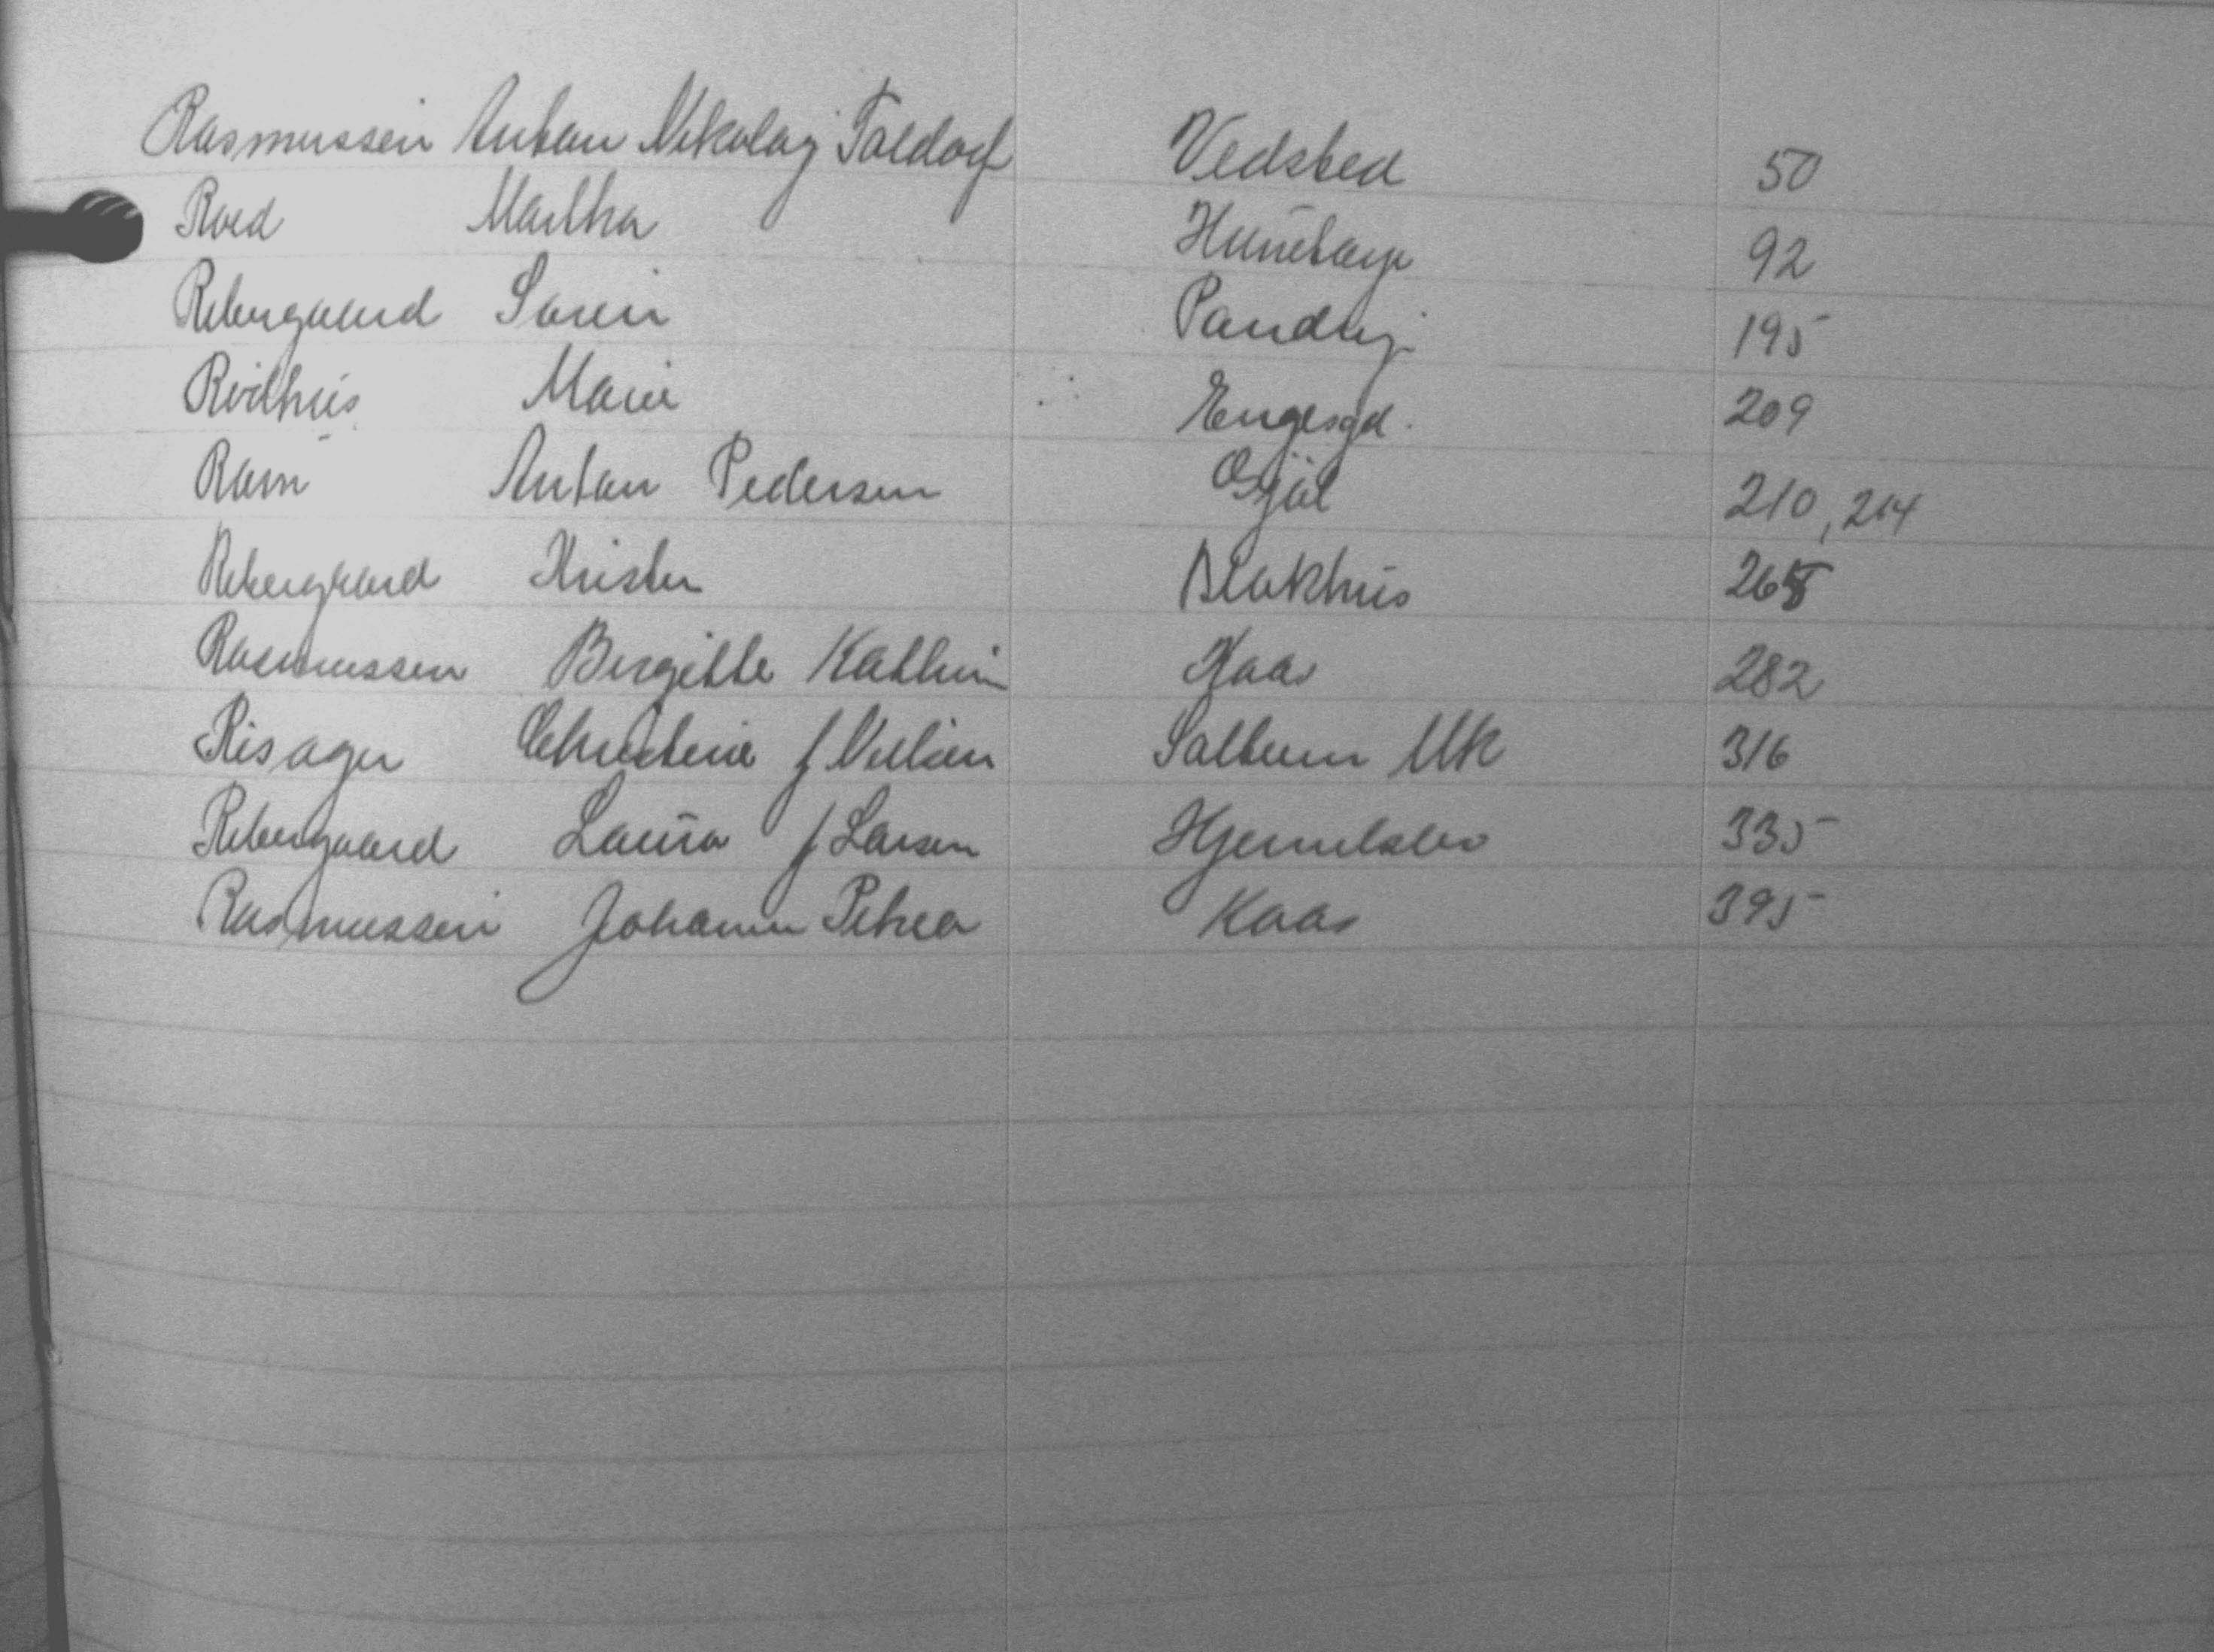 Rasmussen Anton Nikolaj Toldorf Vedsted 50
Roed Martha Hunetorp 92
Rebergaard Søren Pandrup 195
Roilhus Marie Engesgd. 209
Ravn Anton Pedersen Gjøl 210, 214
Rebergaard Krister Blokhus 265
Rasmussen Birgitte Kathrin Kaas 282
Risager Christine f Nielsen Saltum Mk 316
Rebergaard Laura f Larsen Hjermeslev 335
Rasmussen Johanne Petrea Kaas 395